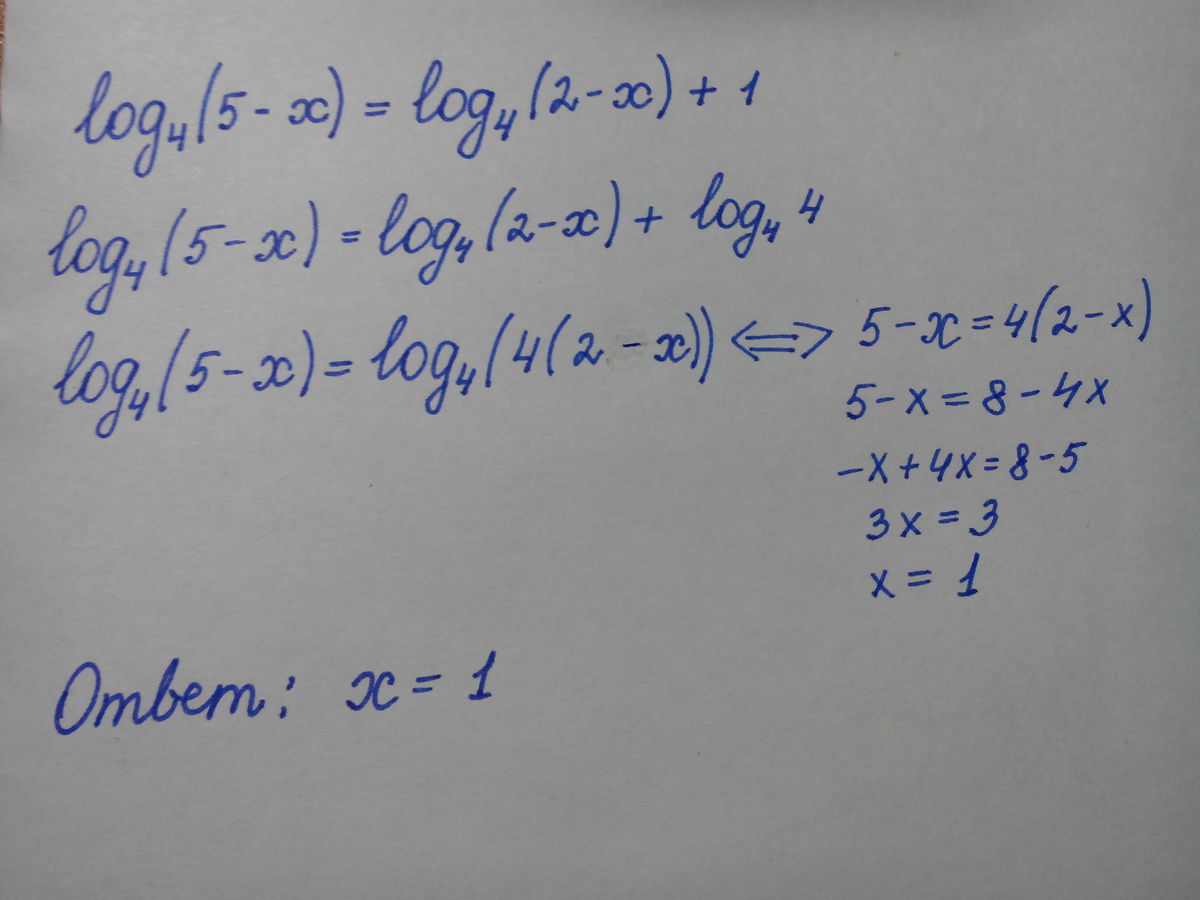 log₄(5-x) = log₄(2-x) + 1
log₄(5-x) = log₄(2-x) + log₄ 4
log₄(5-x) = log₄(4(2-x)) ⟺ 5-x=4(2-x)
5-x=8-4x
-x+4x=8-5
3x=3
x=1
Ответ: x=1